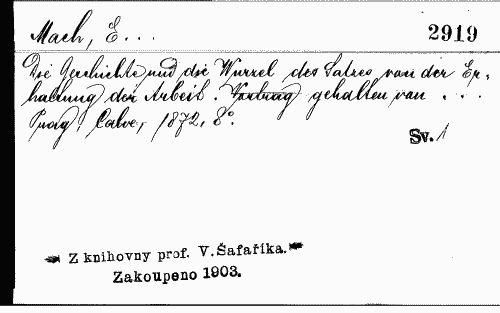 Mach, E...
2919
Die Geschichte und die Wurzel des Satzes von der Er-
haltung der Arbeit. Vortrag gehalten von ...
Prag, Calve, 1872, 8°.
Sv. 1
Z knihovny prof. V. Šafaříka.
Zakoupeno 1903.